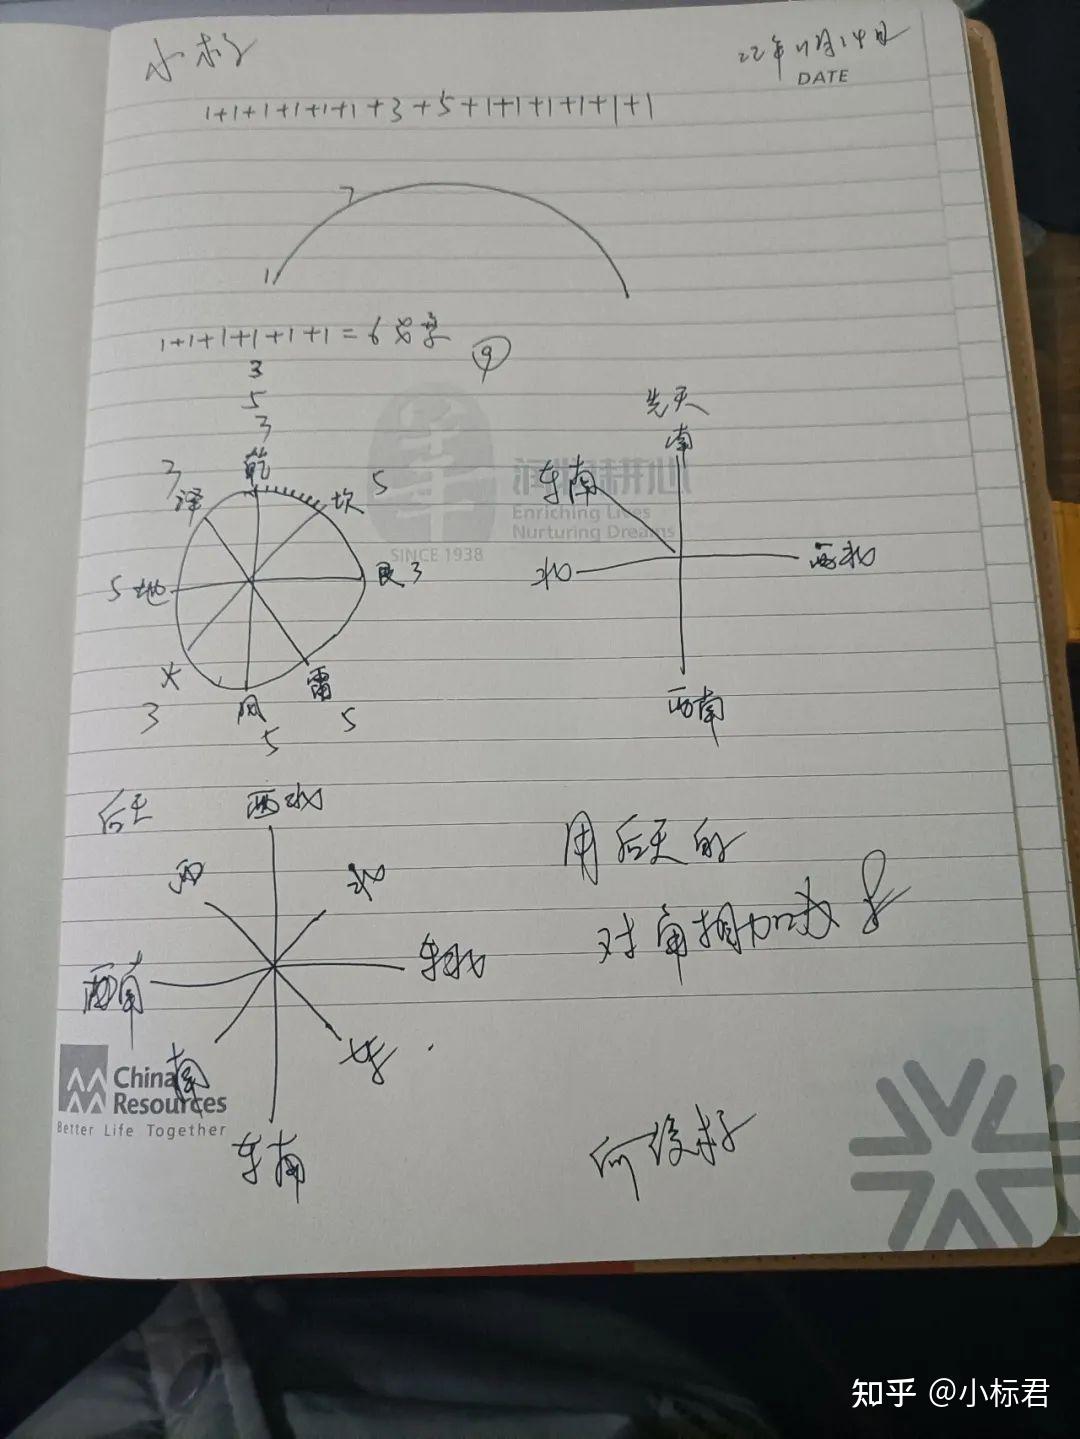 22年11月14日
DATE
1+1+1+1+1+1+3+5+1+1+1+1+1+1
7
1
1+1+1+1+1+1=6
9
3
5
3
乾
3
泽
坎
5
SINCE 1938
Enriching Lives
Nurturing Dreams
5 地
艮 3
火
3
风
5
雷
5
先天
南
东南
北
西北
西南
后天
西北
西
北
西南
东北
南
东
东南
用后天的
对角相加减
China
Resources
Better Life Together
知乎 @小标君